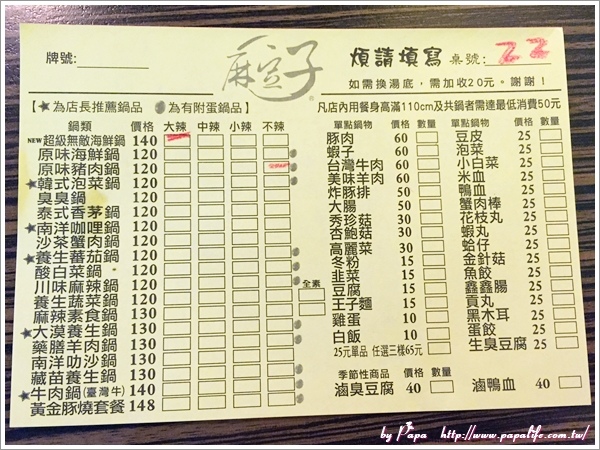 牌號:
麻豆子
煩請填寫 桌號: 22
如需換湯底，需加收20元。謝謝！
【★為店長推薦鍋品 為有附蛋鍋品】
凡店內用餐身高滿110cm及共鍋者需達最低消費50元
鍋類 價格 大辣 中辣 小辣 不辣
NEW 超級無敵海鮮鍋 140
原味海鮮鍋 120
原味豬肉鍋 120
★韓式泡菜鍋 120
臭臭鍋 120
泰式香茅鍋 120
★南洋咖哩鍋 120
沙茶蟹肉鍋 120
★養生蕃茄鍋 120
酸白菜鍋 120
川味麻辣鍋 120
養生蔬菜鍋 120
全素
麻辣素食鍋 130
★大漠養生鍋 130
藥膳羊肉鍋 130
南洋叻沙鍋 130
藏苗養生鍋 130
★牛肉鍋(臺灣牛) 140
黃金豚燒套餐 148
單點鍋物 價格 數量
豚肉 60
蝦子 60
台灣牛肉 60
美味羊肉 60
炸豚排 50
大腸 50
秀珍菇 30
杏鮑菇 30
高麗菜 30
冬粉 15
韭菜 15
豆腐 15
王子麵 15
雞蛋 10
白飯 10
25元單品 任選三樣65元
單點鍋物 價格 數量
豆皮 25
泡菜 25
小白菜 25
米血 25
鴨血 25
蟹肉棒 25
花枝丸 25
蝦丸 25
蛤仔 25
金針菇 25
魚餃 25
鑫鑫腸 25
貢丸 25
黑木耳 25
蛋餃 25
生臭豆腐 25
季節性商品 價格 數量
滷臭豆腐 40 滷鴨血 40
by Papa http://www.papalife.com.tw/